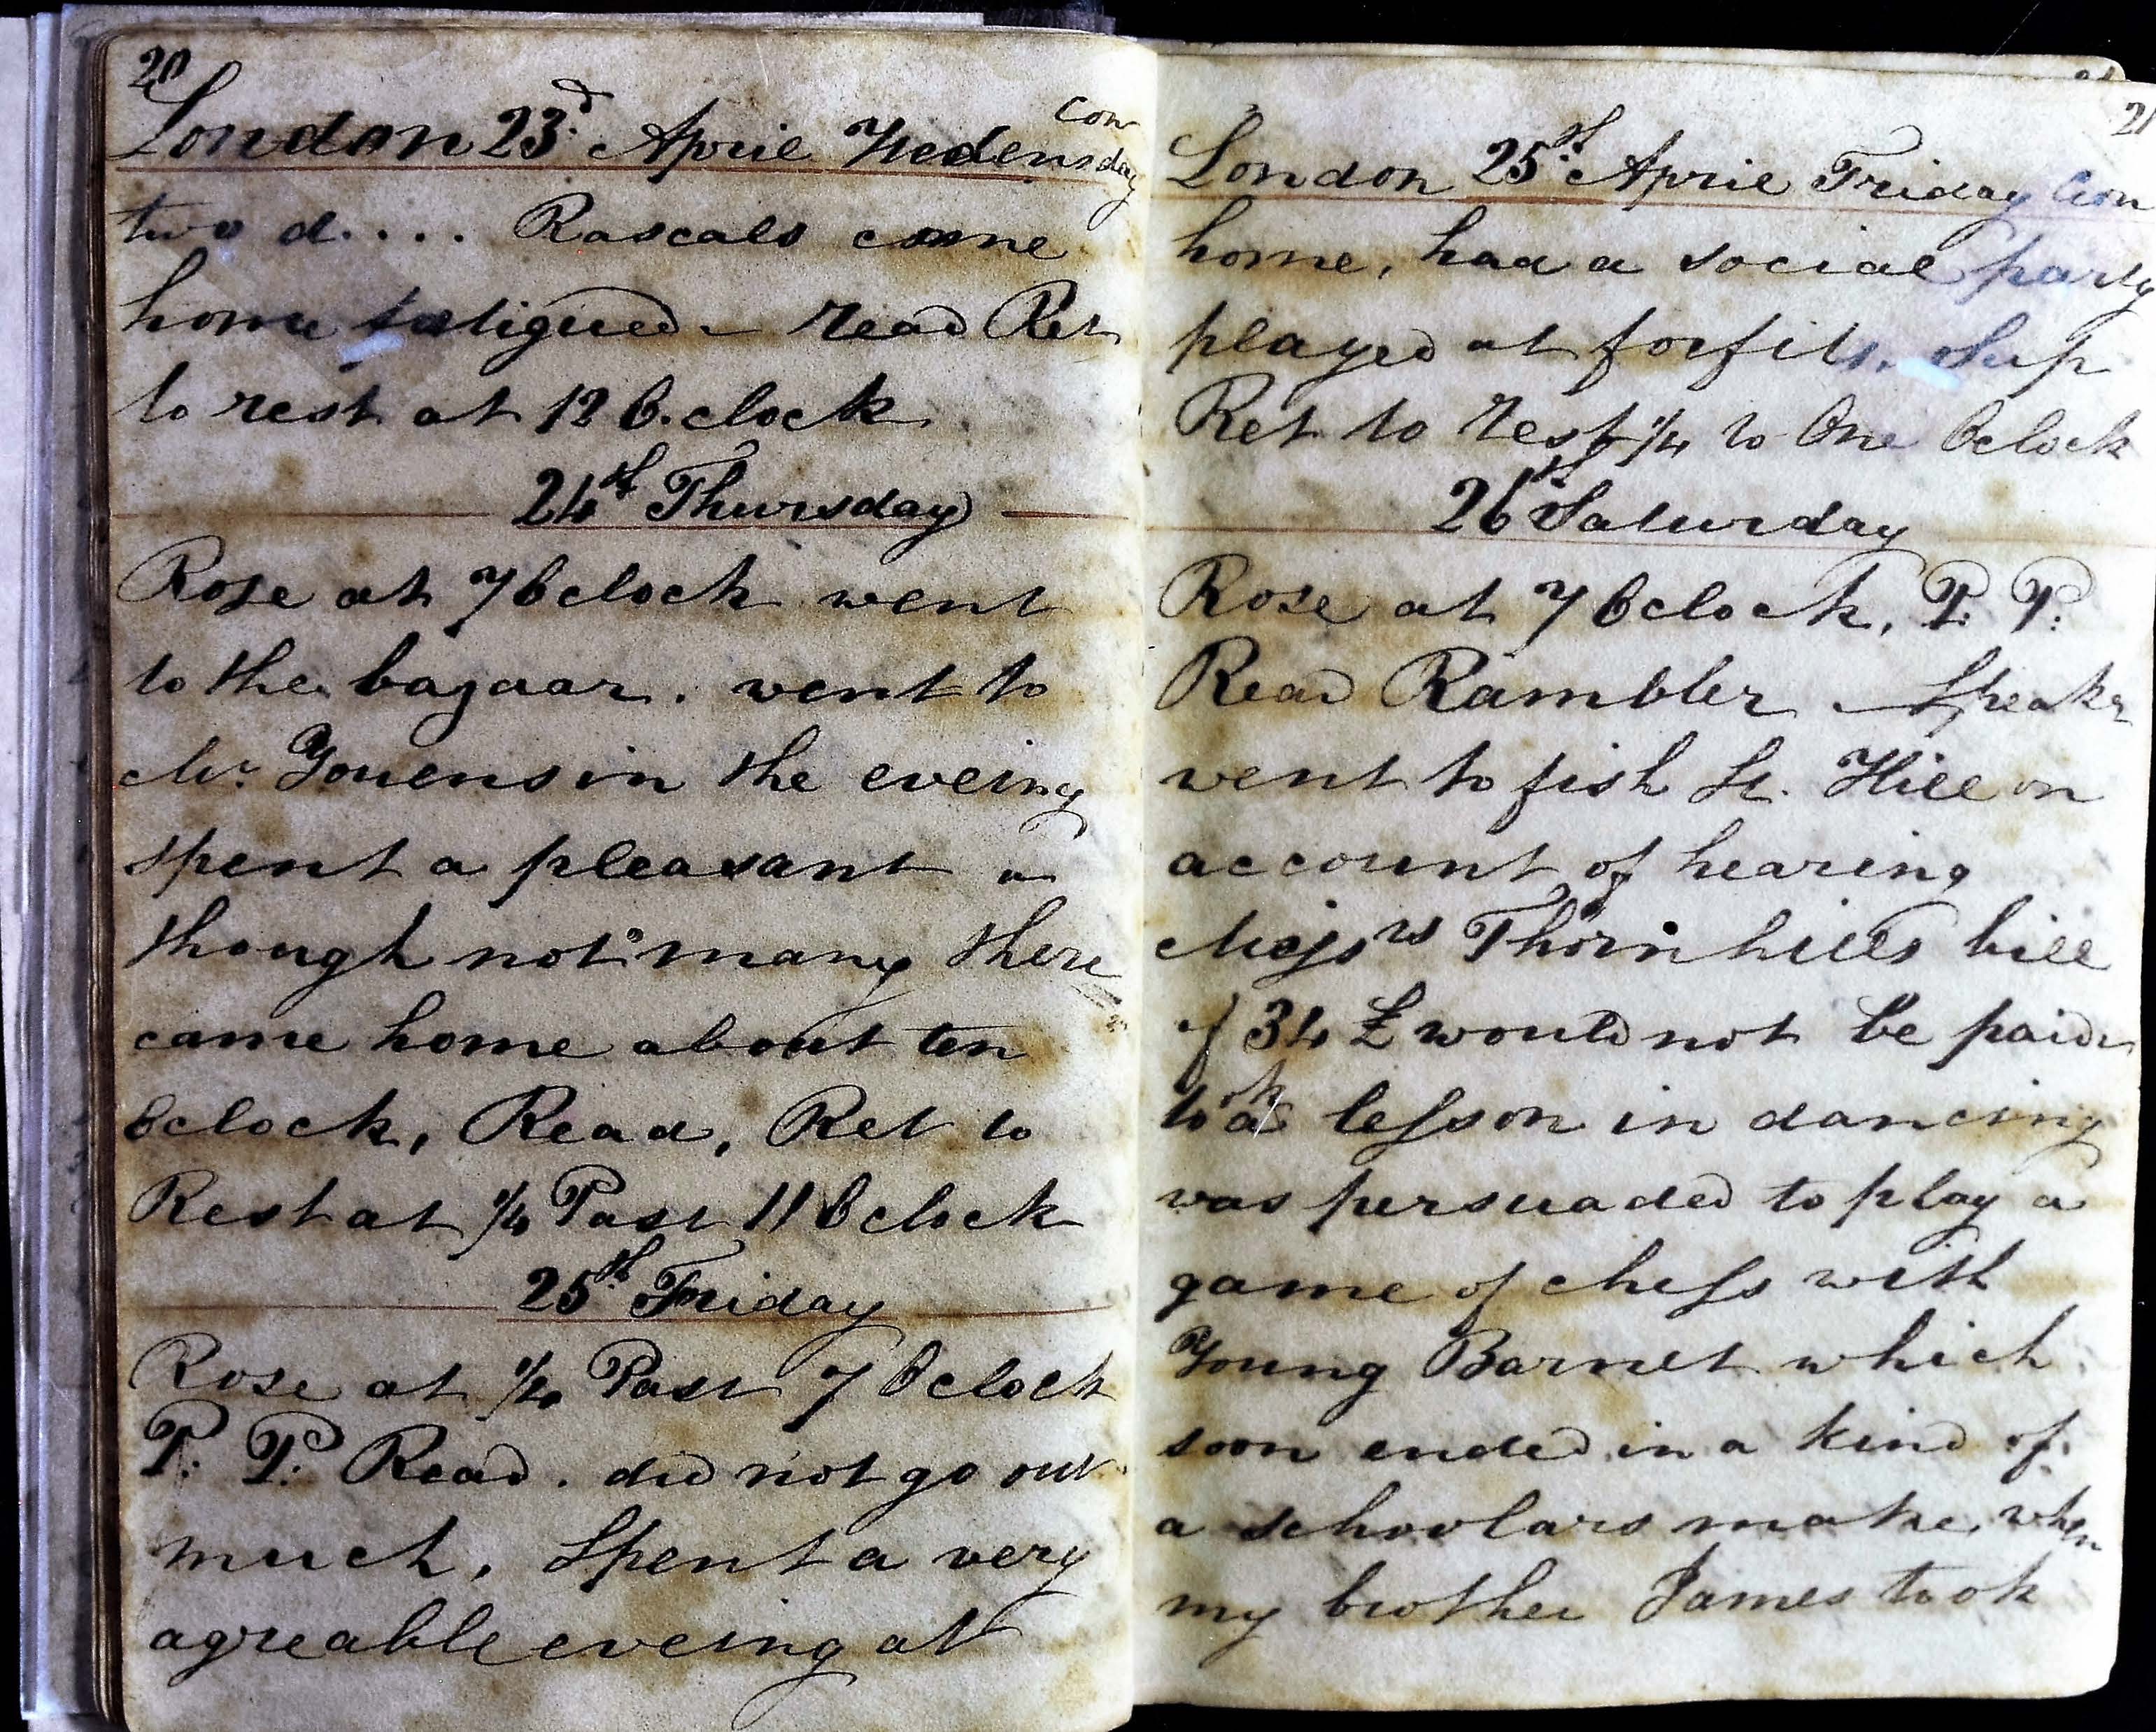 20
London 23.d April Wedensday Con
two d.... Rascals came
home fatigued – read Ret
to rest at 12 O.clock
24th Thursday
Rose at 7 Oclock went
to the bazaar. went to
Mr. Youens in the eveing
spent a pleasant
though not many there
came home about ten
Oclock, Read, Ret to
Rest at 1/4 Past 11 Oclock
25th Friday
Rose at 1/4 Past 7 Oclock
P. P. Read. did not go out
much, Spent a very
agreable eveing at
21
London 25th April Friday Con
home, had a social party
played at forfits. Sup
Ret to rest 1/4 to One Oclock
26th Saturday
Rose at 7 Oclock, P. P.
Read Rambler – Speaker
went to fish St. Hill on
account of hearing
Messrs Thornhills bill
of 34 £ would not be paid
took a lesson in dancing
was persuaded to play a
game of chess with
Young Barnet which
soon ended in a kind of
a schoolars mate, when
my brother James took